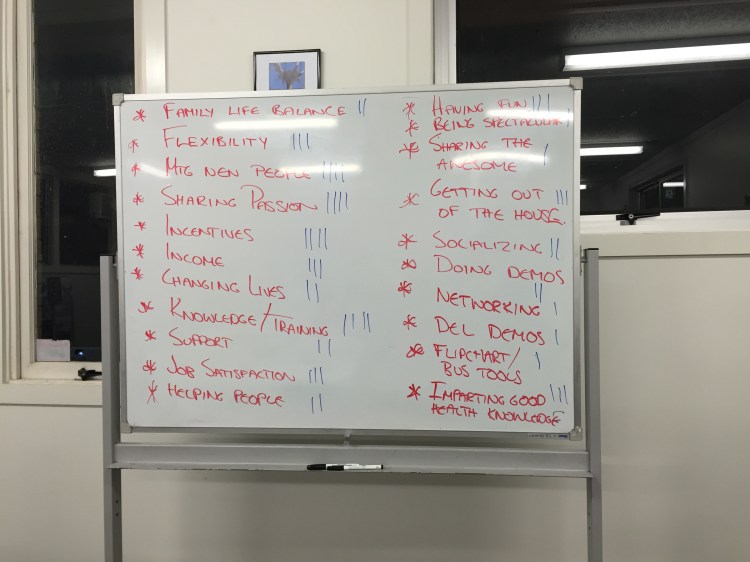 * FAMILY LIFE BALANCE ||
* FLEXIBILITY |||
* MTG NEW PEOPLE ||||
* SHARING PASSION ||||
* INCENTIVES ||||
* INCOME |||
* CHANGING LIVES ||
* KNOWLEDGE/TRAINING ||||
* SUPPORT ||
* JOB SATISFACTION |||
* HELPING PEOPLE ||
* HAVING FUN |||
* BEING SPECTACULAR |
* SHARING THE
AWESOME |
* GETTING OUT |||
OF THE HOUSE.
* SOCIALIZING ||
* DOING DEMOS
||
* NETWORKING |
* DEL DEMOS |
* FLIPCHART/ |
BUS TOOLS
* IMPARTING GOOD |||
HEALTH KNOWLEDGE